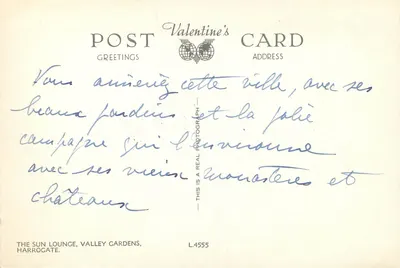 Valentine's
POST CARD
GREETINGS ADDRESS
Vous aimeriez cette ville, avec ses
beaux jardins et la jolie
campagne qui l'environne
avec ses vieux monastères et
châteaux
THIS IS A REAL PHOTOGRAPH
THE SUN LOUNGE, VALLEY GARDENS, L.4555
HARROGATE.